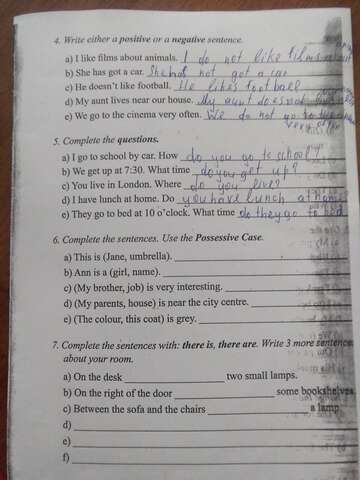 4. Write either a positive or a negative sentence.
a) I like films about animals. I do not like films
b) She has got a car. She has not got a car
c) He doesn't like football. He likes football
d) My aunt lives near our house. My aunt does not
e) We go to the cinema very often. We do not go to
very often
5. Complete the questions.
a) I go to school by car. How do you go to school?
b) We get up at 7:30. What time do you get up?
c) You live in London. Where do you live?
d) I have lunch at home. Do you have lunch at home
e) They go to bed at 10 o'clock. What time do they go to bed
6. Complete the sentences. Use the Possessive Case.
a) This is (Jane, umbrella).
b) Ann is a (girl, name).
c) (My brother, job) is very interesting.
d) (My parents, house) is near the city centre.
e) (The colour, this coat) is grey.
7. Complete the sentences with: there is, there are. Write 3 more sentences
about your room.
a) On the desk ____ two small lamps.
b) On the right of the door ____ some bookshelves
c) Between the sofa and the chairs ____ a lamp
d)
e)
f)